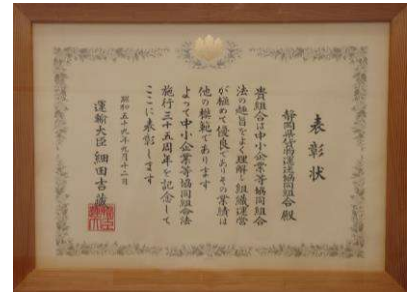 表彰状
静岡県貨物運送協同組合 殿
貴組合は中小企業等協同組合
法の趣旨をよく理解し組織運営
が極めて優良でありその業績は
他の模範であります
よって中小企業等協同組合法
施行三十五周年を記念して
ここに表彰します
昭和五十九年九月十二日
運輸大臣 細田吉藏